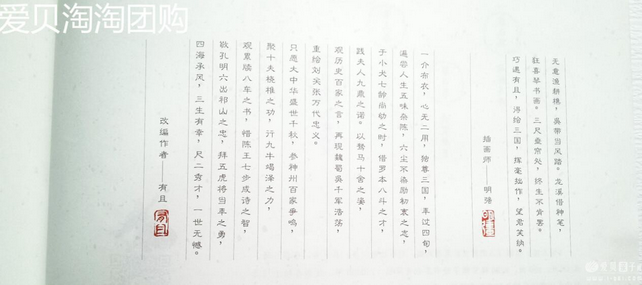 爱贝淘淘团购
无意渔耕樵，吴带当风踏。龙溪借神笔，
驻喜琴书画。三尺壶常处，终生不肯害。
巧遇有且，浔绘三国，挥毫拙作，望君笑纳。
插画师——明
一介布衣，心无二用，独尊三国，年过四旬，
遍尝人生五味杂陈，六尘不染励初衷之志，
于小犬七龄尚幼之时，借罗本八斗之才，
践夫人九鼎之诺。以驽马十舍之姿，
观历史百家之言，再现魏蜀吴千军浩荡，
重绘刘关张万代忠义。
只愿大中华盛世千秋，参神州百家争鸣，
聚十夫桡椎之功，行九牛竭泽之力，
观累牍八车之书，悟陈王七步成诗之智，
敬孔明六出祁山之忠，拜五虎将当年之勇，
四海承风，三生有幸，尺二秀才，一世无憾。
改编作者——有且